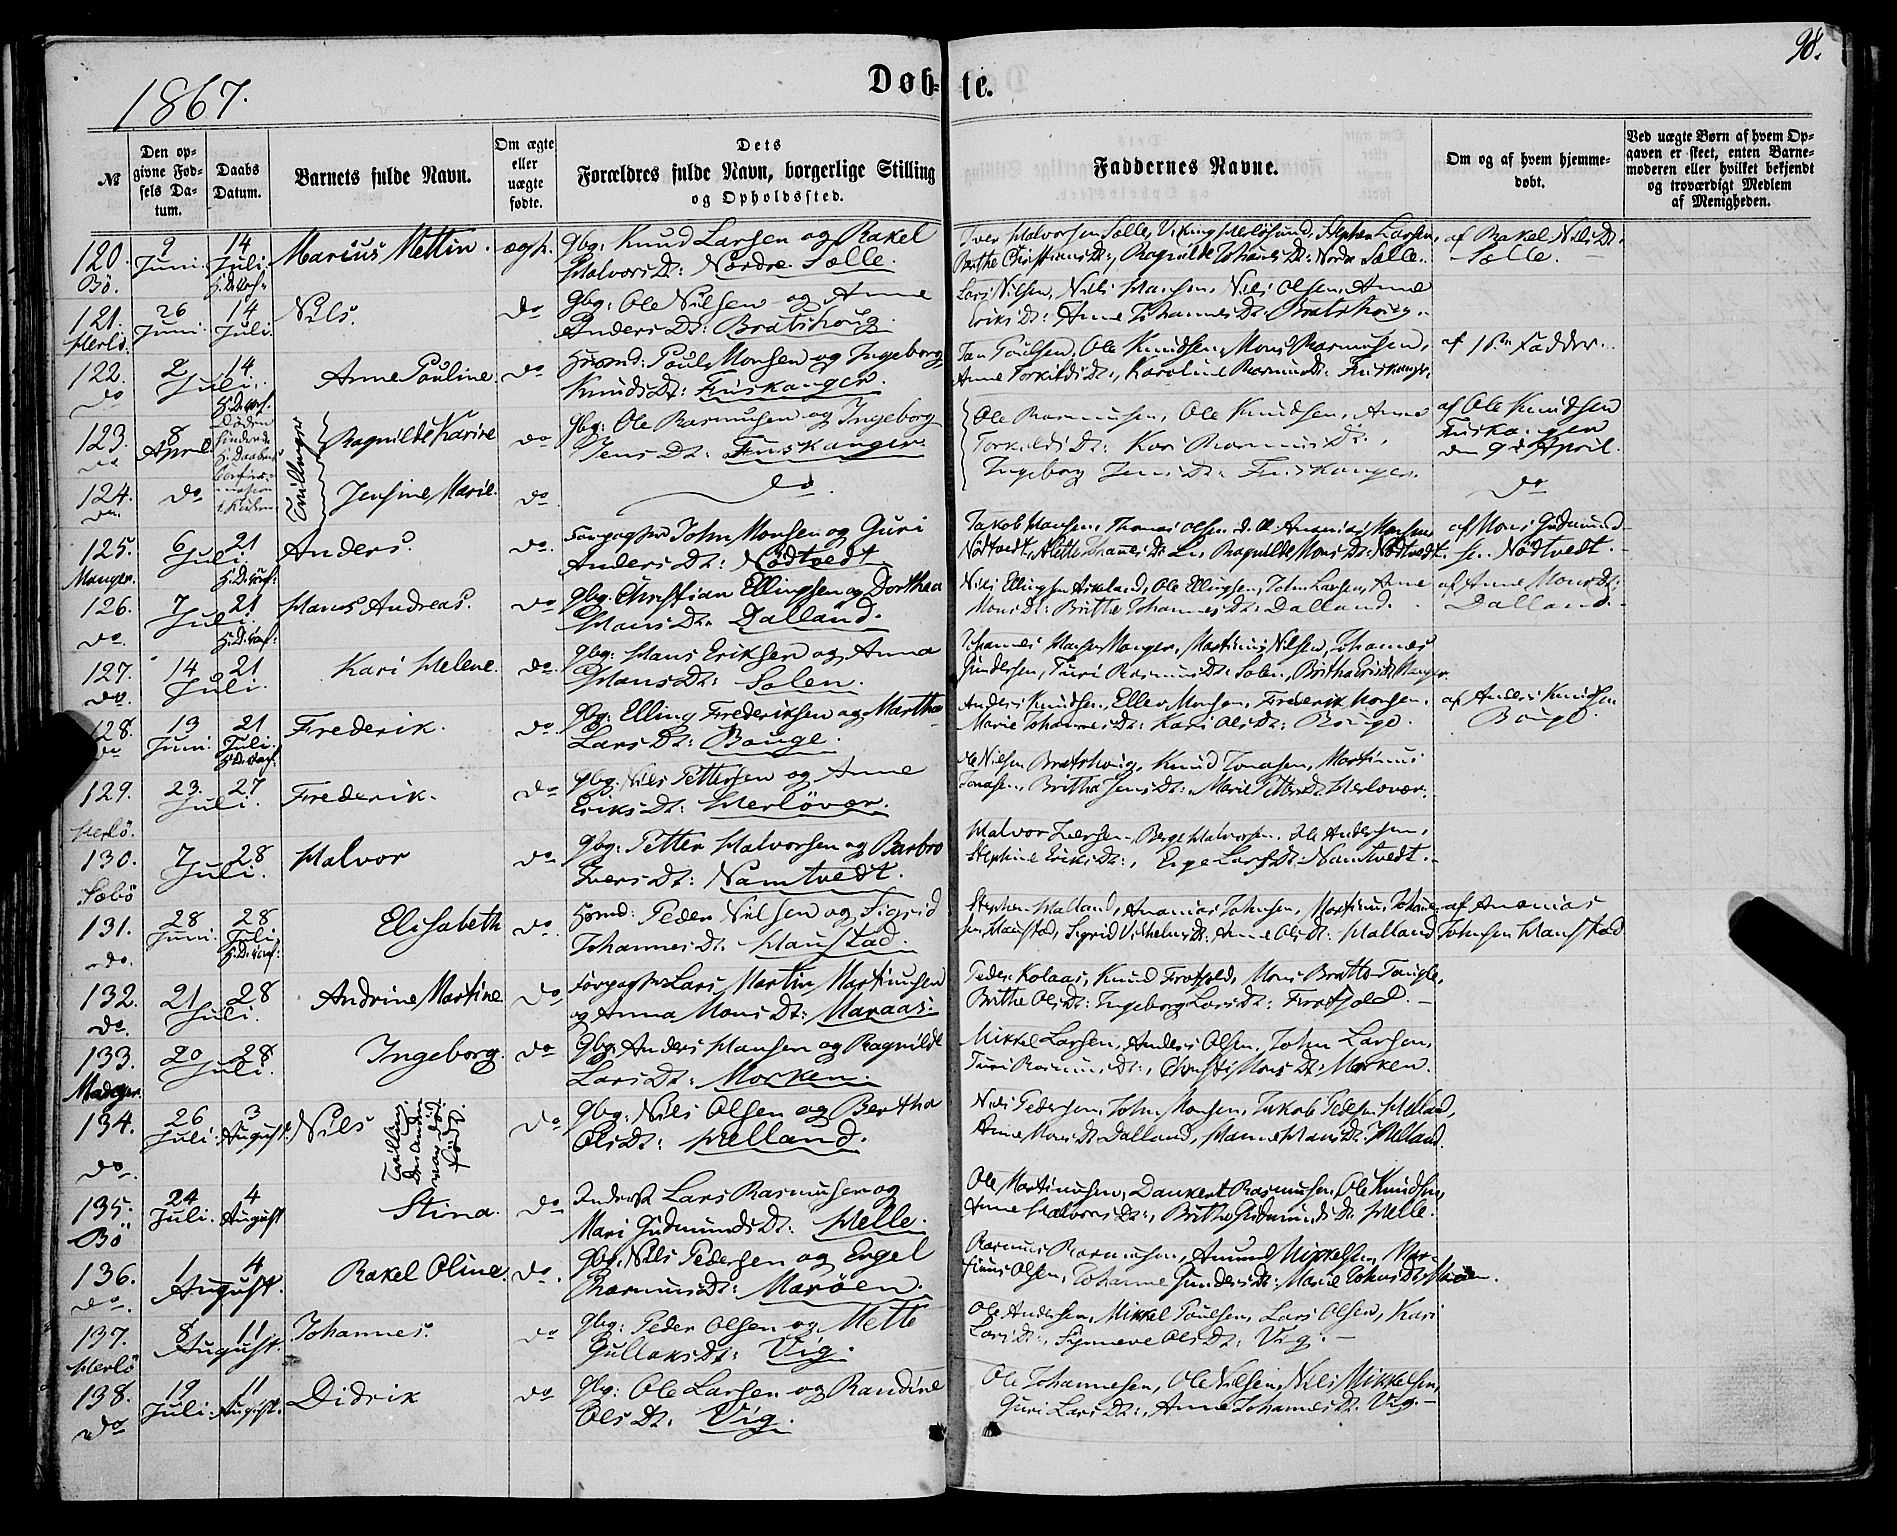 98.
1867.
Døb- te.
№
Den op-
givne Fød-
sels Da-
tum.
Daabs
Datum.
Barnets fulde Navn.
Om ægte
eller
uægte
fødte.
Dets
Forældres fulde Navn, borgerlige Stilling
og Opholdssted.
Faddernes Navne.
Om og af hvem hjemme-
døbt.
Ved uægte Børn af hvem Op-
gaven er skeet, enten Barne-
moderen eller hvilket bekjendt
og troværdigt Medlem
af Menigheden.
120. Bö. 9 Juni. 14 Juli. Marius Mettin. ægt. Gbg: Knud Larsen og Rakel
Halvorsdt: Nordre Sælle.
Iver Halvorsen Sælle, Stephen Larsen,
Berthe Christiansdt:, Ragnilde Johannesdt: Nordre Sælle.
af Rakel Nilsdt:
Sælle.
121. Herlö. 26 Juni. 14 Juli. Nils. do Gbg: Ole Nilsen og Anne
Andersdt: Bratshoug.
Lars Nilsen, Nils Hansen, Nils Olsen, Anne
Eriksdt: Anne Johannesdt: Bratshoug.
122. do 2 14 Juli. Anne Pouline. do Huusmd: Poul Monsen og Ingeborg
Knudsdt: Fuskanger.
Jan Poulsen, Ole Knudsen, Mons Rasmussen,
Anne Torkildsdt:, Karoline Rasmusdt: Fuskanger.
af 1ste Fadder.
123. do 8 April Tvillinger Ragnilde Karine do Gbg: Ole Rasmusen og Ingeborg
Jensdt: Fuskanger.
Ole Rasmusen, Ole Knudsen, Anne
Torkildsdt: Kari Rasmusdt:,
Ingeborg Jensdt: Fuskanger.
af Ole Knudsen
Fuskanger
den 9de April.
124. do. do Jensine Marie. do. do do
125. Manger. 6 21 Juli Anders. do. Forpagter John Monsen og Guri
Andersdt: Nödtvedt.
Jakob Hansen, Thomas Olsen, Ananias Monsen
Nödtvedt, Ragnilde Monsdt: Nödtvedt.
af Mons Gudmund-
sen Nödtvedt.
126. do. 7 21 Juli. Hans Andreas. do Gbg: Christian Ellingsen og Dorthea
Hansdt. Dalland.
Nils Ellingsen Askeland, Ole Ellingsen, John Larsen, Anne
Monsdt: Brithe Johannesdt: Dalland.
af Anne Monsdt:
Dalland.
127. do. 14 21 Juli. Kari Helene. do. Gbg: Hans Eriksen og Anna
Hansdt: Solen.
Johannes Hansen Manger, Martinus Nilsen, Johannes
Gundersen, Turi Rasmusdt: Solen, Britha Eriksdt Manger.
128. do 13 Juni. 21 Juli. Frederik. do. Gbg: Elling Frederiksen og Martha
Larsdt: Bouge.
Anders Knudsen, Elling Monsen, Frederik Monsen,
Marie Johannesdt: Kari Olsdt: Bouge.
af Anders Knudsen
Bouge.
129. Herlö. 23. 27 Juli. Frederik. do Gbg: Nils Pettersen og Anne
Eriksdt: Herlövær.
Ole Nilsen Bratshoug, Knud Jonasen, Martinus
Jonasen, Britha Jensdt: Marie Pettersdt: Herlövær.
130. Sæbö 7 28 Juli. Halvor do. Gbg: Petter Halvorsen og Barbro
Iversdt: Namtvedt.
Halvor Iversen, Berge Halvorsen, Ole Andersen,
Stephine Eriksdt:, Larsdt: Namtvedt.
131. do. 28 Juni. 28 Juli. Elisabeth do. Huusmd: Peder Nilsen og Sigrid
Johannesdt. Haustad.
Stephen Halland, Ananias Johnsen, Martinus Johan-
sen Haustad, Sigrid Vilhelmsdt: Anne Olsdt: Halland
af Ananias
Johnsen Haustad
132. do. 21 28 Juli. Andrine Martine. do Forpagter Lars Martin Martinusen
og Anna Monsdt: Maraas.
Peder Kolaas, Knud Frotjold, Mons Bratte-Tangle,
Brithe Olsdt: Ingeborg Larsdt: Frotjold.
133. Manger. 20 28 Juli. Ingeborg. do Gbg: Anders Hansen og Ragnilde
Larsdt: Morken.
Mikkel Larsen, Anders Olsen, John Larsen,
Turi Rasmusdt:, Christi Monsdt: Morken.
134. do. 26 Juli. 3 August. Nils Tvilling, den anden var död född. do. Gbg: Nils Olsen og Bertha
Olsdt: Helland.
Nils Pedersen, John Monsen, Jakob Pedersen Helland,
Anne Monsdt Dalland, Hansdt: Helland.
135. Bö 24 Juli. 4 August Stina. do Inderst Lars Rasmusen og
Mari Gudmundsdt: Helle.
Ole Martinussen, Dankert Rasmusen, Ole Knudsen,
Anne Halvorsdt:, Brithe Gudmundsdt: Helle.
136. do. 1 4 August. Rakel Oline. do. Gbg: Nils Pedersen og Engel
Rasmusdt: Maröen.
Rasmus Rasmusen, Amund Mikkelsen, Mar-
tinus Olsen, Johanne Gundersdt: Marie Johansdt: Maröen.
137. Herlö 8 11 August. Johannes. do Gbg: Peder Olsen og Mette
Gullaksdt: Vig.
Ole Andersen, Mikkel Poulsen, Lars Olsen, Kari
Larsdt:, Synneve Olsdt: Vig.
138. do 19 Juli. 11 August. Didrik do Gbg: Ole Larsen og Randine
Olsdt: Vig.
Ole Johannesen, Ole Nilsen, Nils Mikkelsen,
Guri Larsdt:, Anne Johannesdt: Vig.